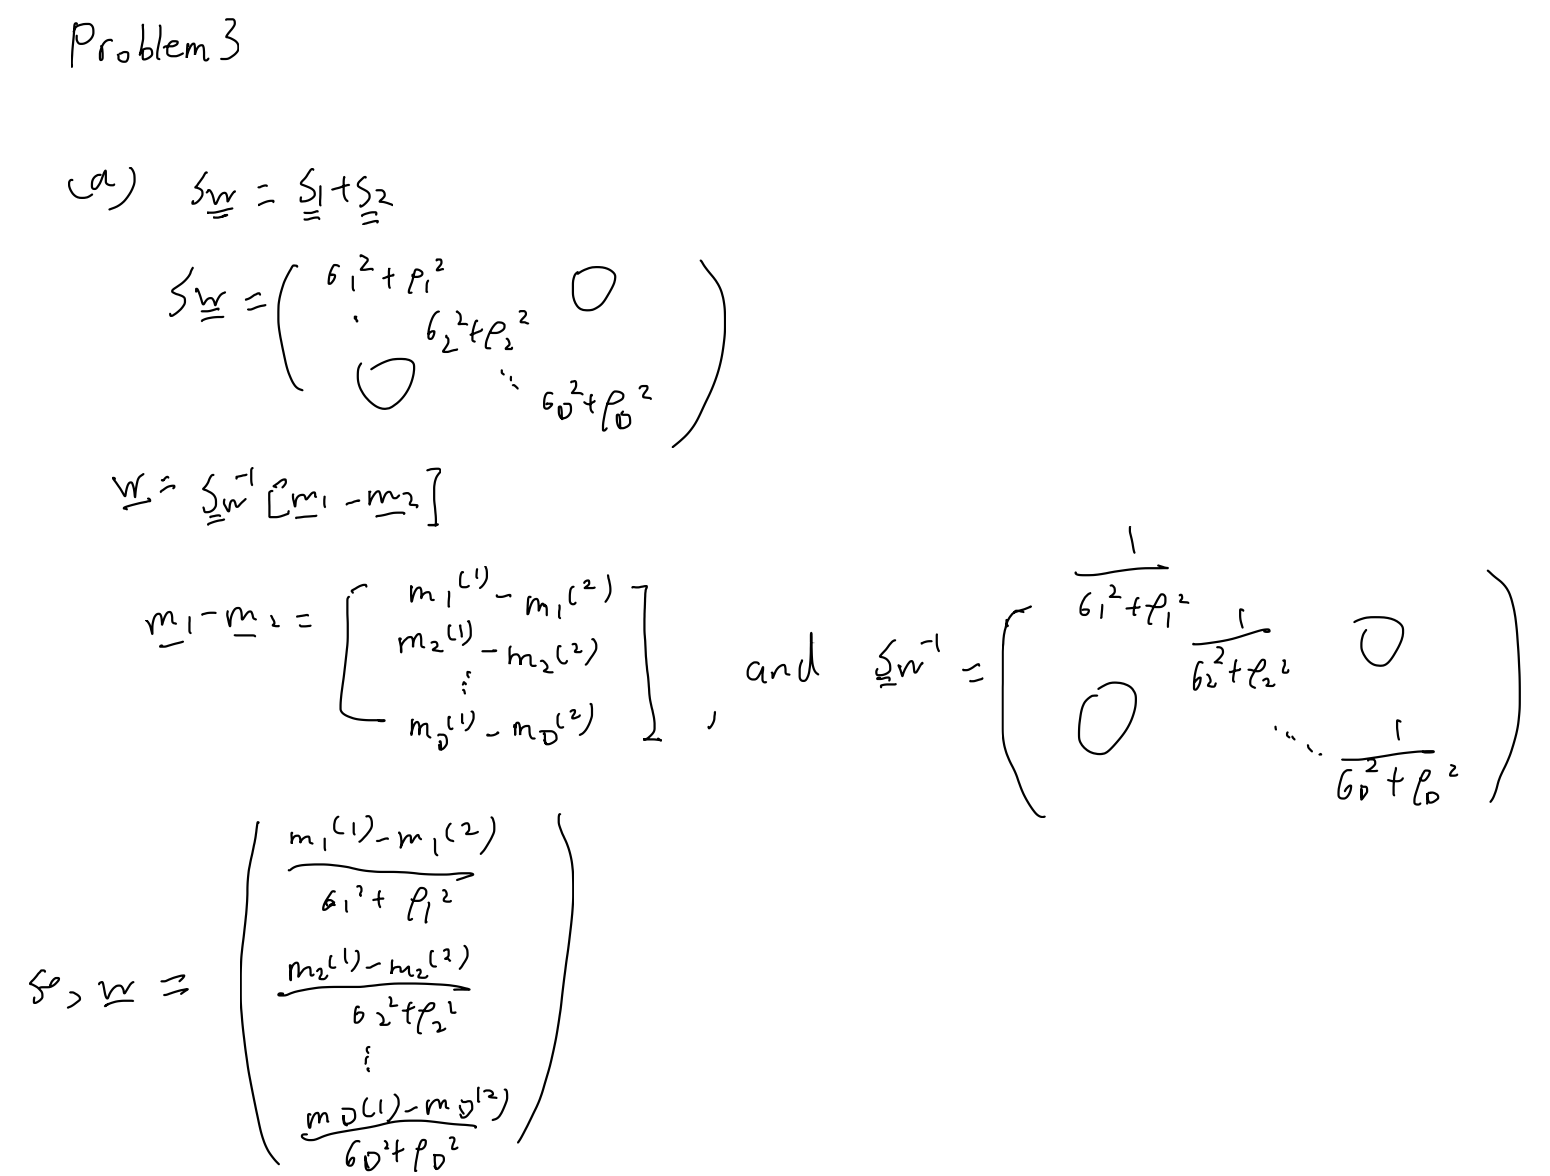 Problem 3
(a) S_w = S_1 + S_2
S_w = ( σ_1^2 + ρ_1^2 0
σ_2^2 + ρ_2^2
0 ⋱ σ_D^2 + ρ_D^2 )
w = S_w^{-1} [m_1 - m_2]
m_1 - m_2 = [ m_1^{(1)} - m_1^{(2)} m_2^{(1)} - m_2^{(2)} ⋮ m_D^{(1)} - m_D^{(2)} ] , and S_w^{-1} = ( 1/(σ_1^2 + ρ_1^2) 1/(σ_2^2 + ρ_2^2) 0 0 ⋱ 1/(σ_D^2 + ρ_D^2) )
so, w = ( (m_1^{(1)} - m_1^{(2)})/(σ_1^2 + ρ_1^2)
(m_2^{(1)} - m_2^{(2)})/(σ_2^2 + ρ_2^2)
⋮
(m_D^{(1)} - m_D^{(2)})/(σ_D^2 + ρ_D^2) )